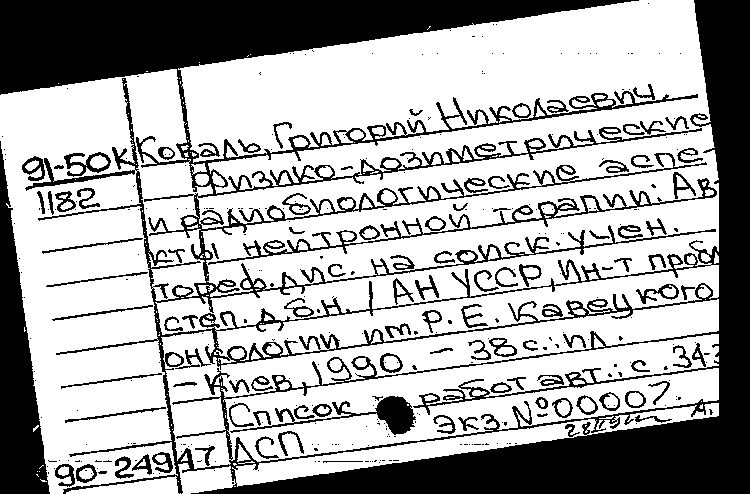 91-50К Коваль, Григорий Николаевич.
1182 Физико-дозиметрические
и радиобиологические аспе-
кты нейтронной терапии: Ав-
тореф. дис. на соиск. учен.
степ. д.б.н. / АН УССР, Ин-т пробл
онкологии им. Р. Е. Кавецкого
- Киев, 1990. - 38 с.: ил.
Список работ авт.: с. 34-3
Экз. №00007.
90-24947 ДСП.